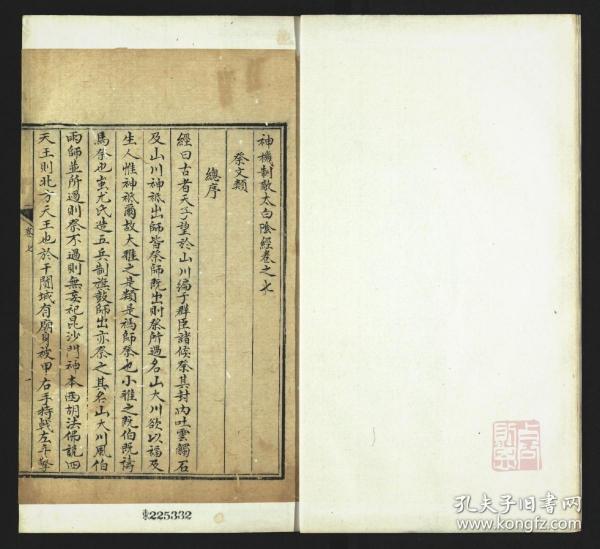 神機制敵太白陰經卷之七
祭文類
總序
經曰古者天子望於山川徧于群臣諸侯祭其封內吐雲觸石
及山川神祗出師皆祭師旣出則祭所過名山大川欲以福及
生人惟神祗爾故大雅之是類是禡師祭也小雅之旣伯旣禱
馬祭也蚩尤氏造五兵制旗鼓師出亦祭之其名山大川風伯
雨師並所過則祭不過則無妄祀毘沙門神本西胡法佛說四
天王則北方天王也於于闐城有廟身被甲右手持戟左手擎
卷七
一
225332
孔夫子旧书网
www.kongfz.com